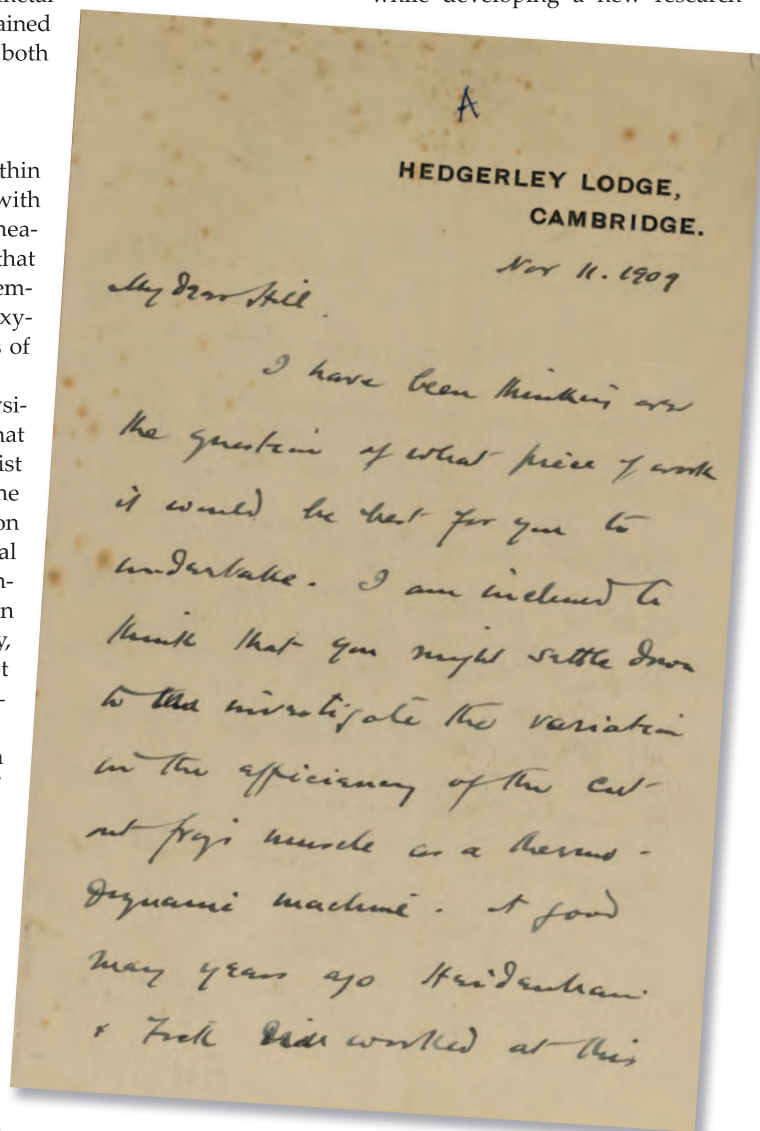 while developing a new research
ained
both
thin
with
nea-
that
em-
oxy-
s of
ysi-
hat
ist
ne
on
al
n-
n
y,
ot
-
A
HEDGERLEY LODGE,
CAMBRIDGE.
Nov 11. 1909
My dear Hill.
I have been thinking over
the question of what piece of work
it would be best for you to
undertake. I am inclined to
think that you might settle down
to investigate the variation
in the efficiency of the cut
out frog's muscle as a thermo-
dynamic machine. A good
many years ago Heidenhain
& Fick worked at this